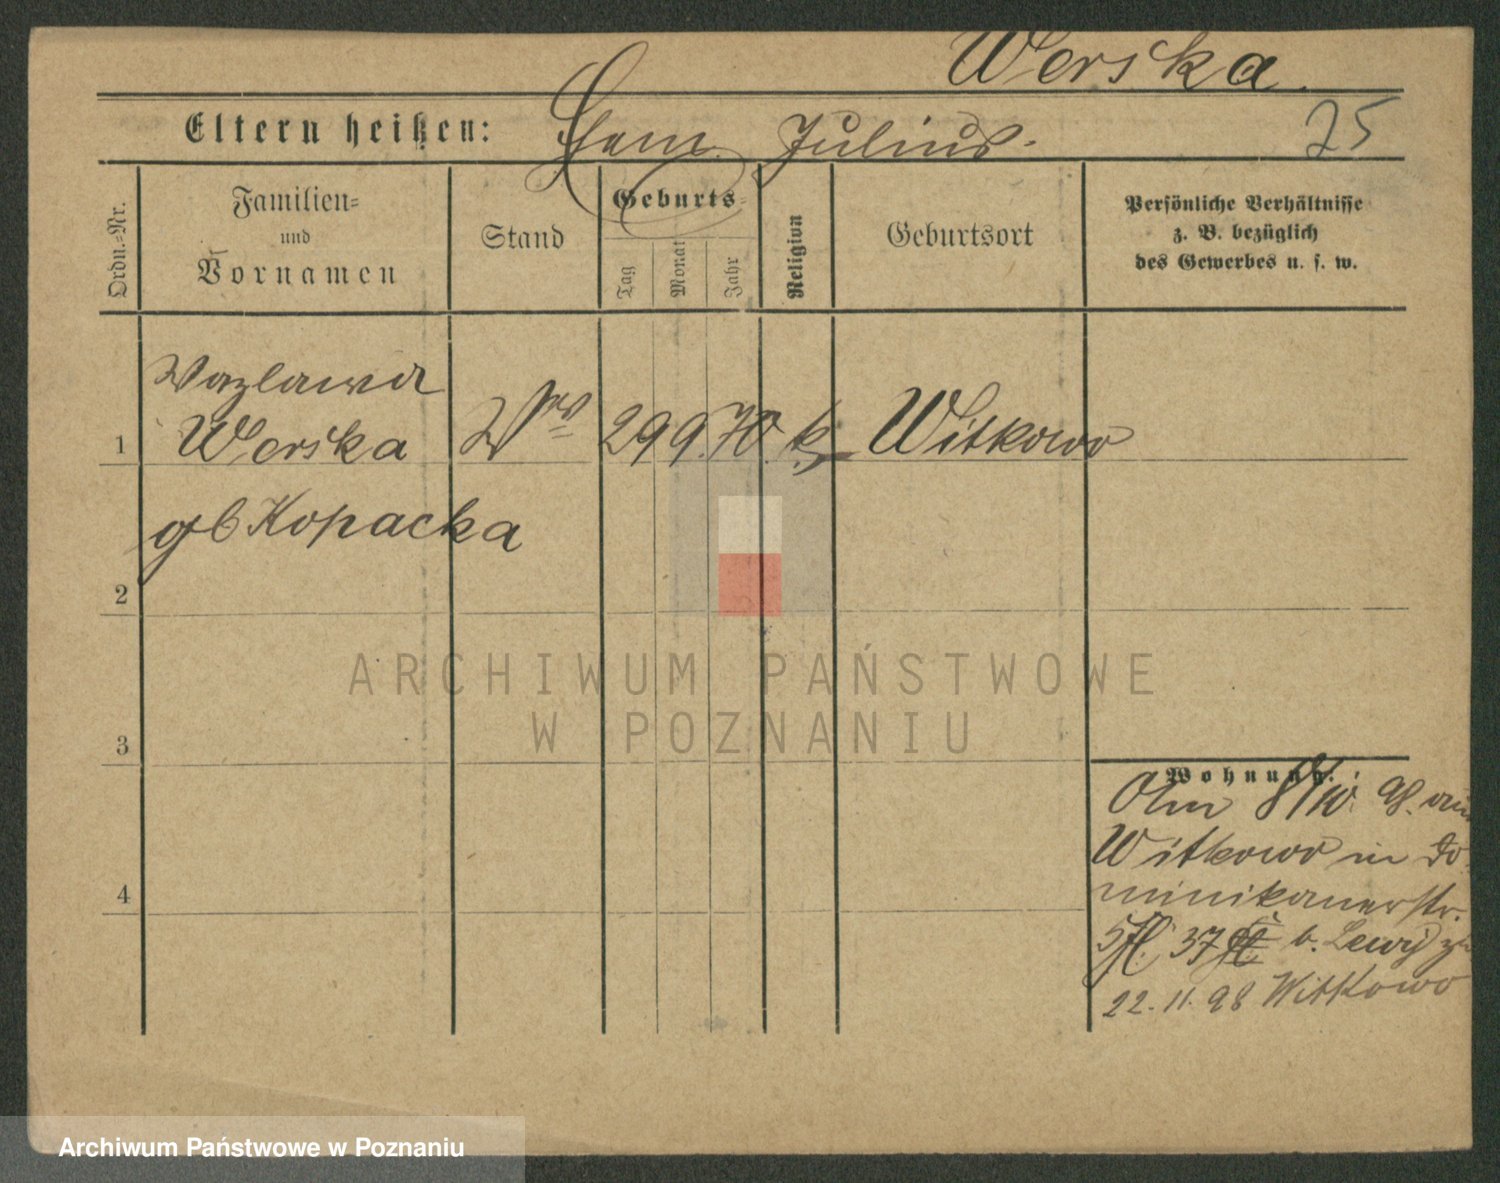 Werska
Eltern heißen: Ehem. Julius.
25
Ordn.-Nr.
Familien-
und
Vornamen
Stand
Geburts-
Tag
Monat
Jahr
Religion
Geburtsort
Persönliche Verhältnisse
z. B. bezüglich
des Gewerbes u. s. w.
Wazlawa
1 Werska Ww 29 9. 70. k. Witkowo
gb Kopacka
2
ARCHIWUM PAŃSTWOWE
W POZNANIU
3
Wohnung:
98. aus
Witkowo in Do
4 minikanerstr.
37 b. Lewy
22. 11. 98 Witkowo
Archiwum Państwowe w Poznaniu